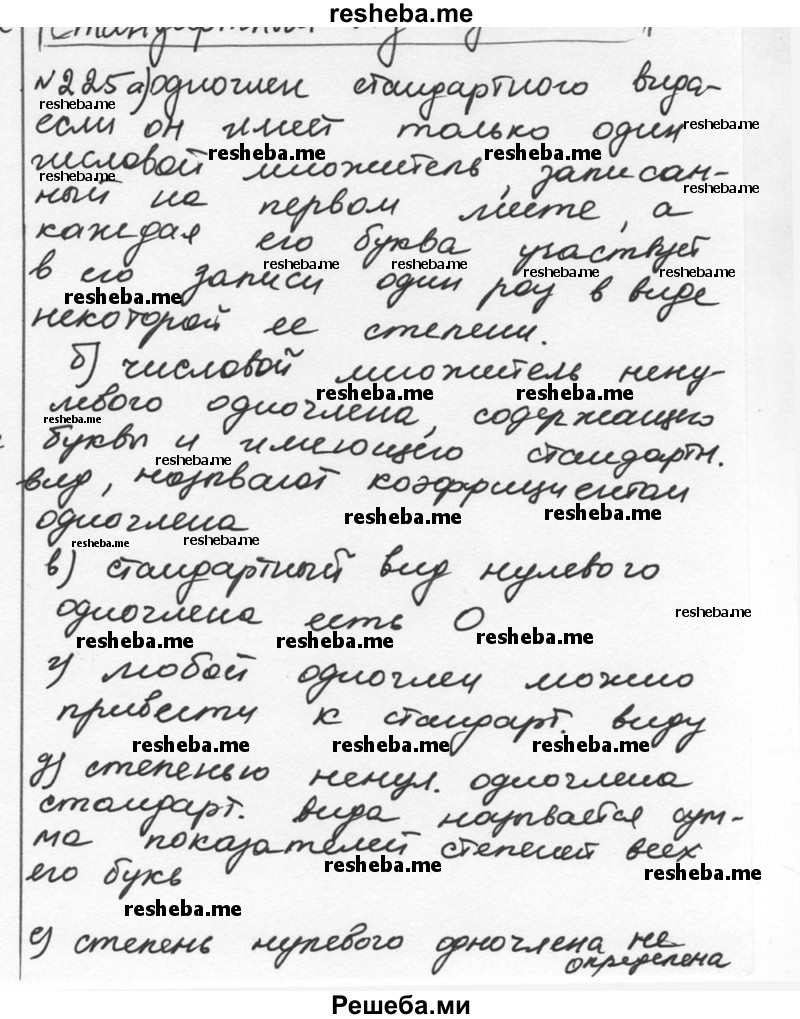 resheba.me
Стандартный
№225 а) одночлен стандартного вида-
resheba.me
если он имеет только один
resheba.me
resheba.me resheba.me
числовой множитель, записан-
resheba.me resheba.me
ный на первом месте, а
каждая его буква участвует
resheba.me resheba.me resheba.me resheba.me
в его записи один раз в виде
resheba.me
некоторой ее степени.
б) числовой множитель нену-
resheba.me resheba.me
левого одночлена, содержащего
resheba.me
буквы и имеющего стандартн.
resheba.me
вид, называют коэффициентом
resheba.me resheba.me
одночлена
resheba.me resheba.me
в) стандартный вид нулевого
одночлена есть 0
resheba.me
resheba.me resheba.me resheba.me
г) любой одночлен можно
привести к стандарт. виду
resheba.me resheba.me resheba.me
д) степенью ненул. одночлена
стандарт. вида называется сум-
ма показателей степеней всех
resheba.me resheba.me
его букв
resheba.me
е) степень нулевого одночлена не
определена
Решеба.ми